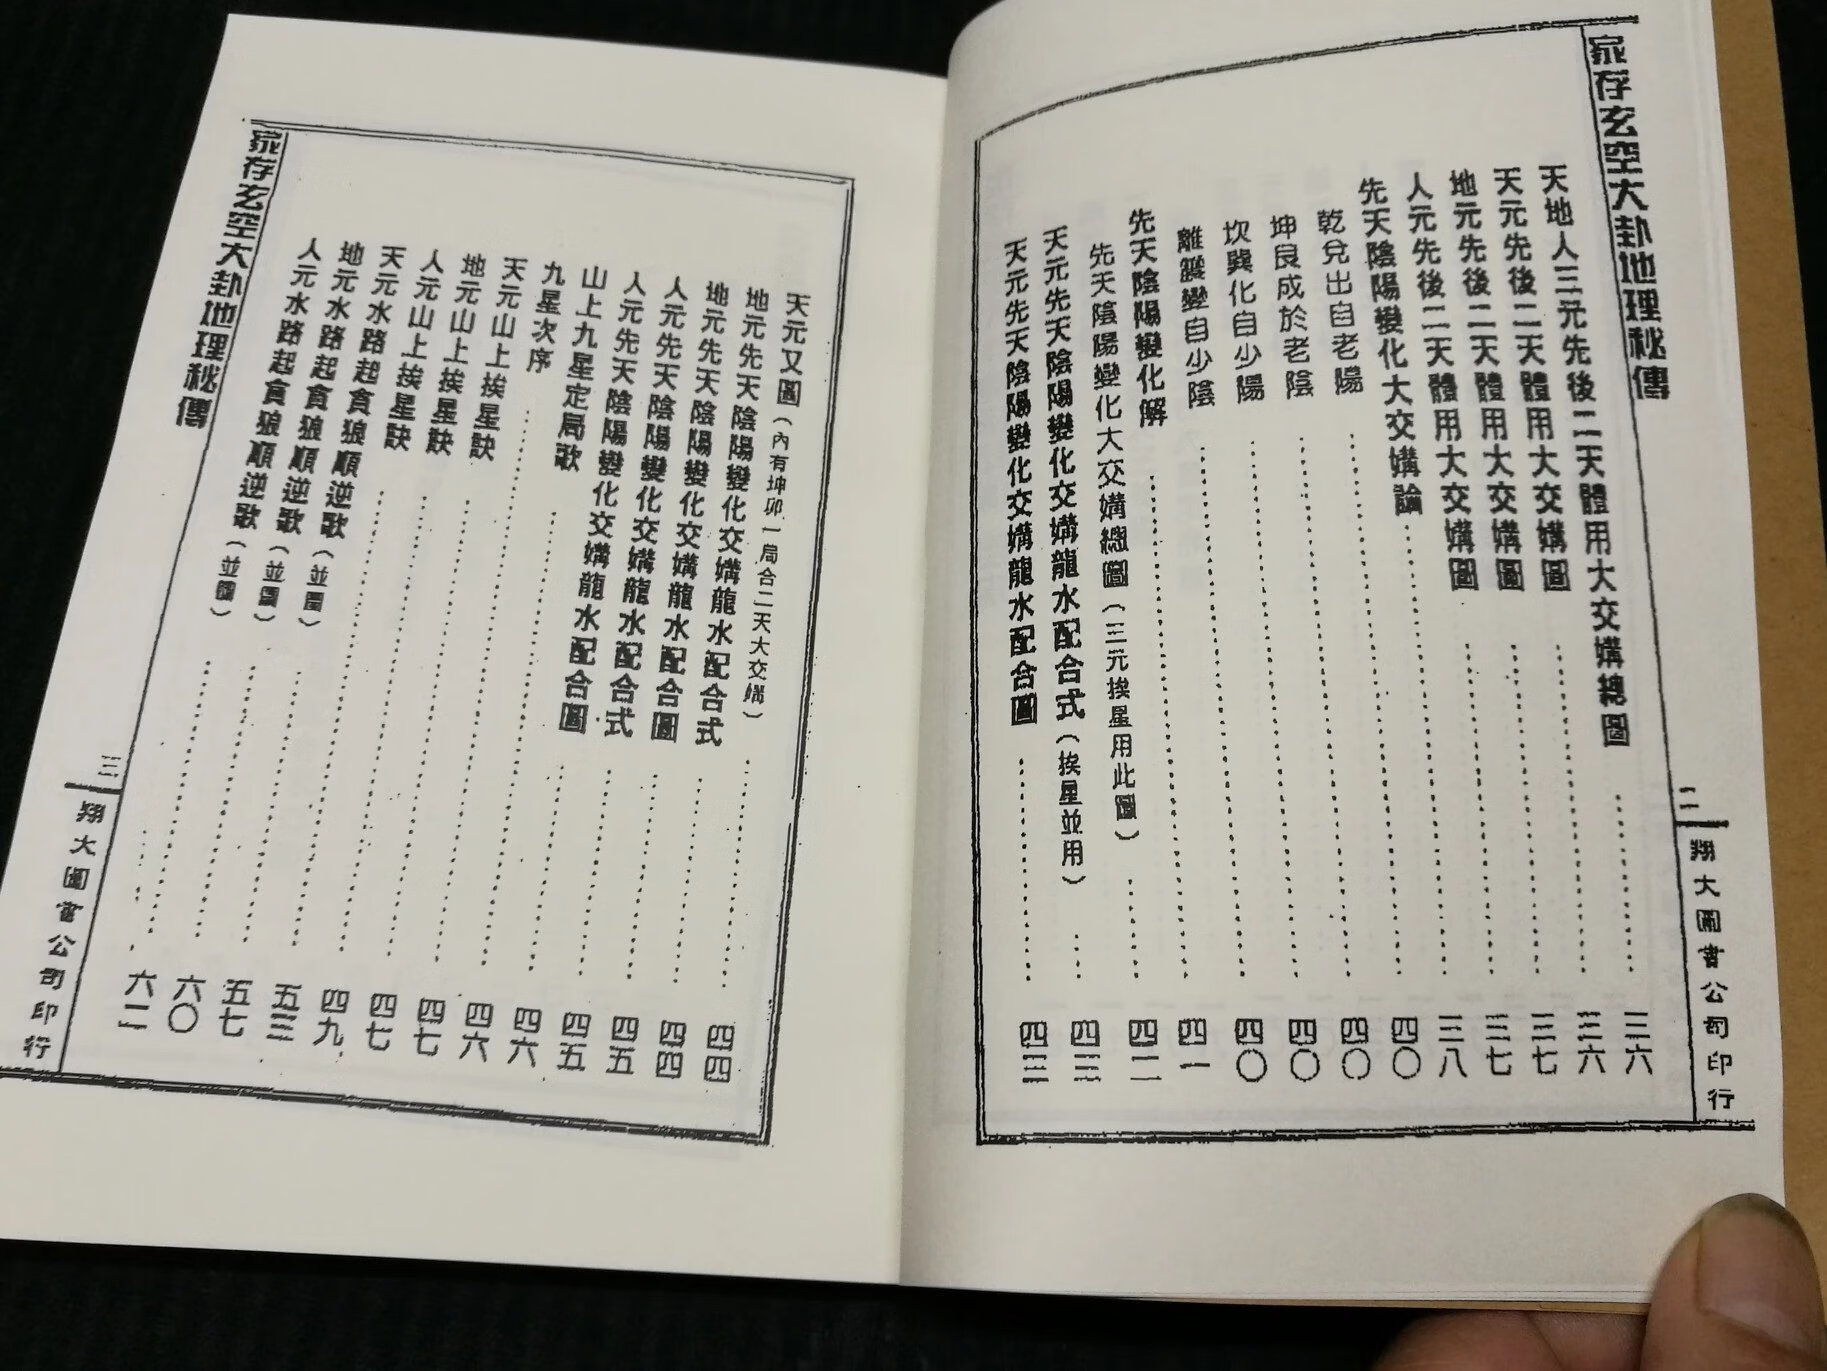 家存玄空大卦地理秘傳
二 翔大圖書公司印行
天地人三元先後二天體用大交媾總圖……三六
天元先後二天體用大交媾圖……三六
地元先後二天體用大交媾圖……三七
人元先後二天體用大交媾圖……三七
先天陰陽變化大交媾論……三八
乾兌出自老陽……四〇
坤艮成於老陰……四〇
坎巽化自少陽……四〇
離震變自少陰……四〇
先天陰陽變化解……四一
先天陰陽變化大交媾總圖（三元挨星用此圖）……四二
天元先天陰陽變化交媾龍水配合式（挨星並用）……四三
天元先天陰陽變化交媾龍水配合圖……四三
天元又圖（內有坤卯一局合二天大交媾）……四四
地元先天陰陽變化交媾龍水配合式……四四
地元先天陰陽變化交媾龍水配合圖……四五
人元先天陰陽變化交媾龍水配合式……四五
人元先天陰陽變化交媾龍水配合圖……四六
山上九星定局歌……四六
九星次序……四七
天元山上挨星訣……四七
地元山上挨星訣……四九
人元山上挨星訣……五三
天元水路起貪狼順逆歌（並圖）……五七
地元水路起貪狼順逆歌（並圖）……六〇
人元水路起貪狼順逆歌（並圖）……六二
家存玄空大卦地理秘傳
三 翔大圖書公司印行